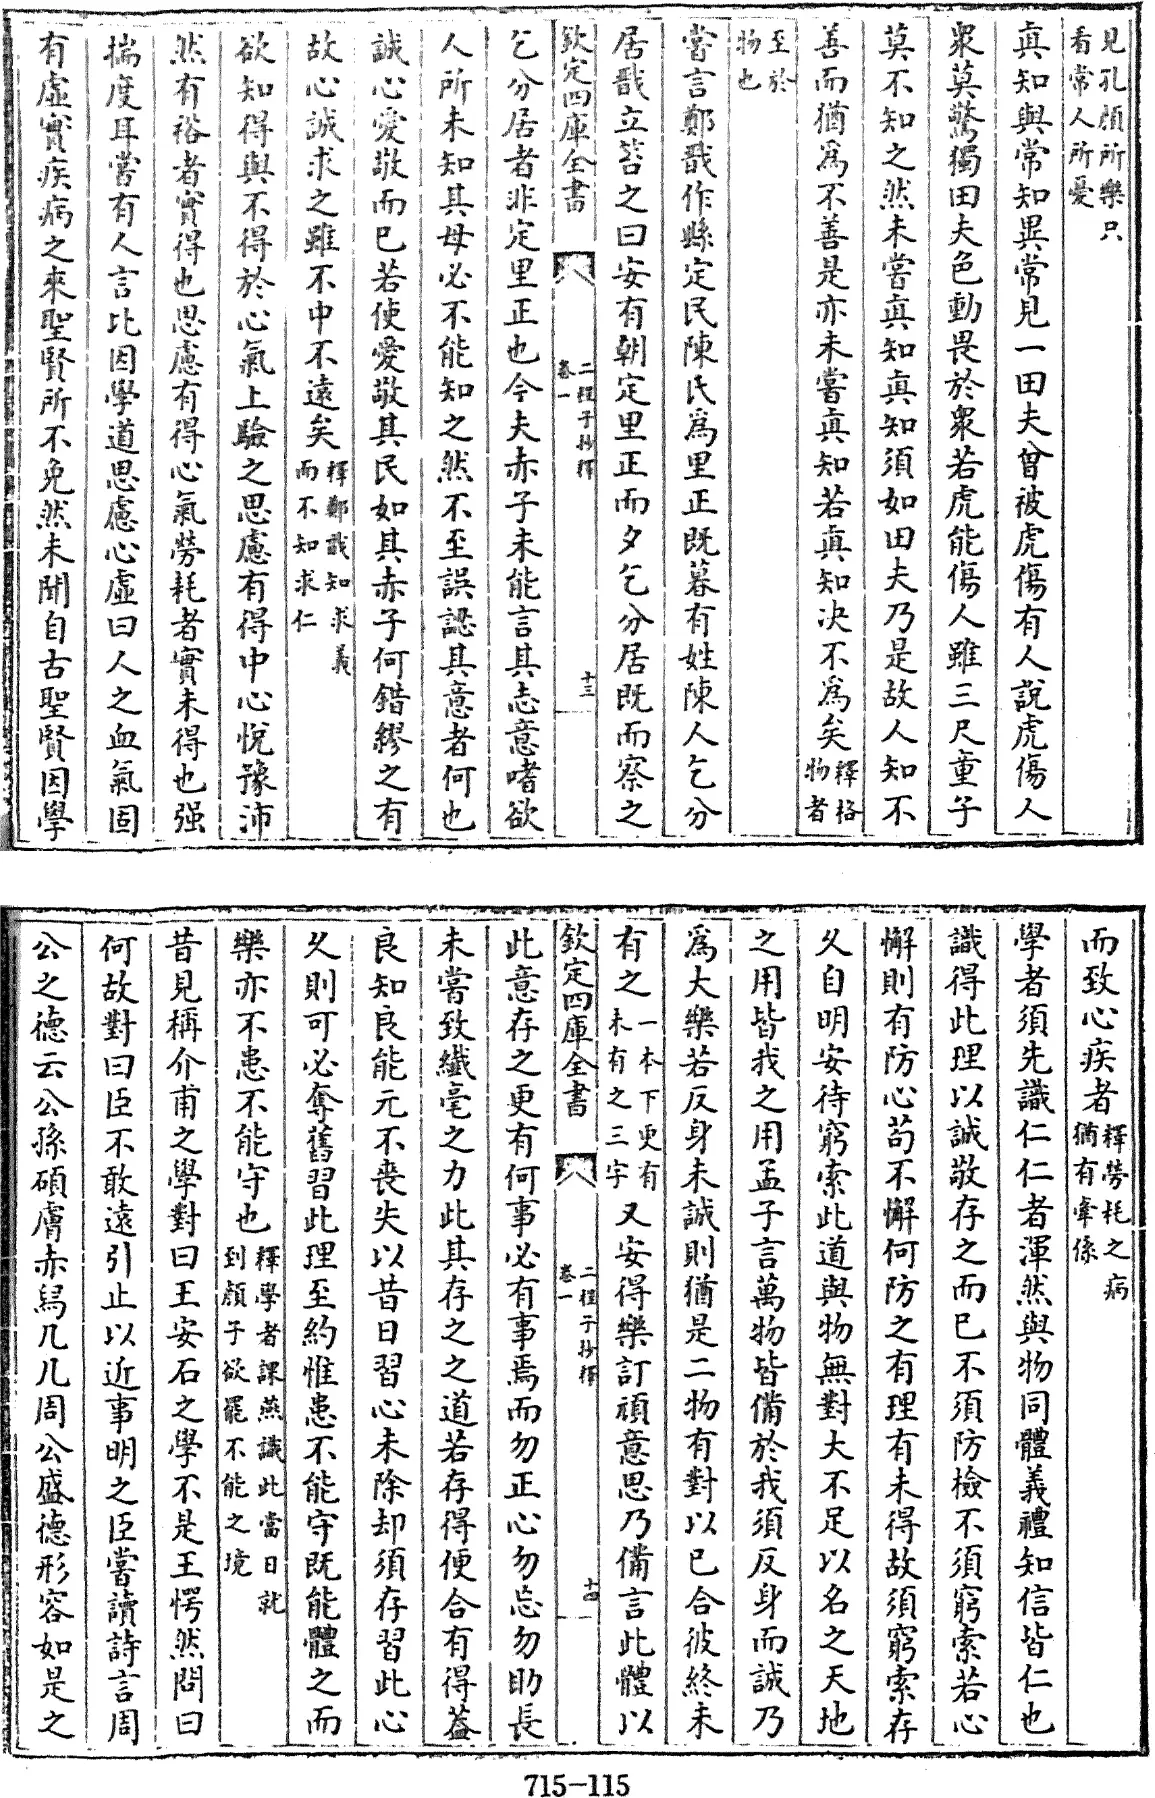 見孔顔所樂只
看常人所憂
真知與常知異常見一田夫曾被虎傷有人說虎傷人
衆莫驚獨田夫色動畏於衆若虎能傷人雖三尺童子
莫不知之然未嘗真知真知須如田夫乃是故人知不
善而猶爲不善是亦未嘗真知若真知决不爲矣釋格
物者
至於
物也
嘗言鄭戬作縣定民陳氏爲里正既暮有姓陳人乞分
居戬立笞之曰安有朝定里正而夕乞分居既而察之
欽定四庫全書
二程子抄釋
卷一
十三
乞分居者非定里正也今夫赤子未能言其志意嗜欲
人所未知其母必不能知之然不至誤認其意者何也
誠心愛敬而已若使愛敬其民如其赤子何錯繆之有
故心誠求之雖不中不遠矣釋鄭戬知求義
而不知求仁
欲知得與不得於心氣上驗之思慮有得中心悅豫沛
然有裕者實得也思慮有得心氣勞耗者實未得也强
揣度耳嘗有人言比因學道思慮心虛曰人之血氣固
有虛實疾病之來聖賢所不免然未聞自古聖賢因學
而致心疾者釋勞耗之病
猶有牽係
學者須先識仁仁者渾然與物同體義禮知信皆仁也
識得此理以誠敬存之而已不須防檢不須窮索若心
懈則有防心苟不懈何防之有理有未得故須窮索存
乆自明安待窮索此道與物無對大不足以名之天地
之用皆我之用孟子言萬物皆備於我須反身而誠乃
爲大樂若反身未誠則猶是二物有對以已合彼終未
有之一本下更有
未有之三字又安得樂訂頑意思乃備言此體以
欽定四庫全書
二程子抄釋
卷一
十四
此意存之更有何事必有事焉而勿正心勿忘勿助長
未嘗致纎毫之力此其存之之道若存得便合有得葢
良知良能元不喪失以昔日習心未除却須存習此心
乆則可必奪舊習此理至約惟患不能守既能體之而
樂亦不患不能守也釋學者課無識此當日就
到顔子欲罷不能之境
昔見稱介甫之學對曰王安石之學不是王愕然問曰
何故對曰臣不敢遠引止以近事明之臣嘗讀詩言周
公之德云公孫碩膚赤舄几几周公盛德形容如是之
715-115